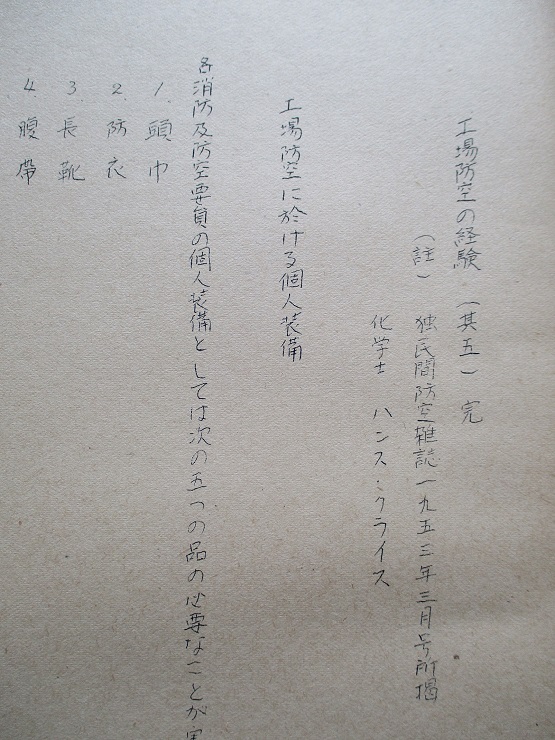 工場防空の経験 （其五） 完
（註） 独民間防空雑誌一九五三年三月号所掲
化学士 ハンス・クライス
工場防空に於ける個人装備
各消防及防空要員の個人装備としては次の五つの品の必要なことが実
1. 頭巾
2. 防衣
3. 長靴
4. 腹帯